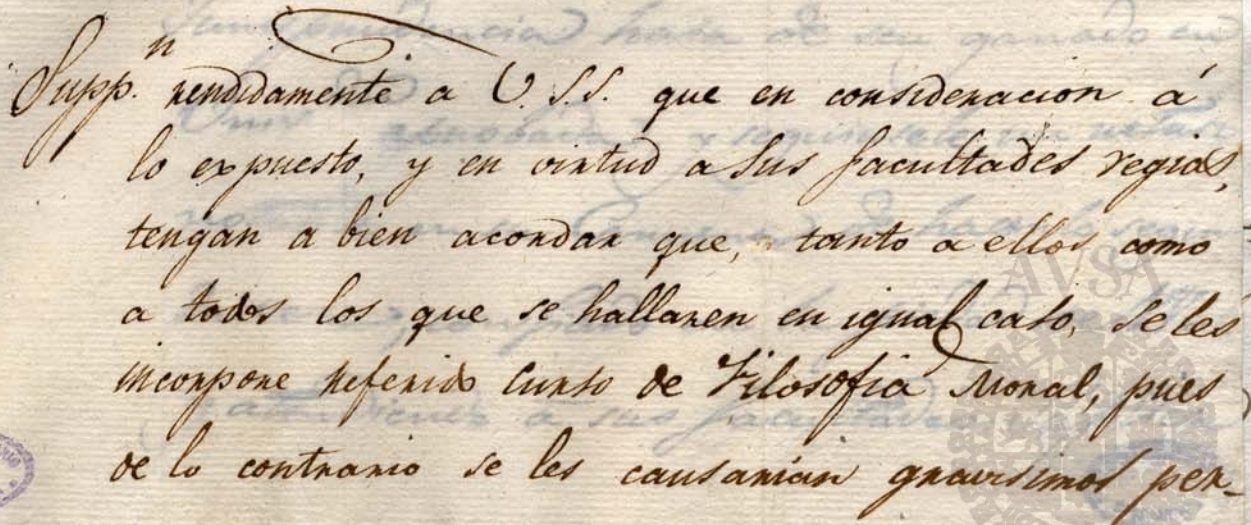 Supp.n rendidamente a V.S.S. que en consideracion á
lo expuesto, y en virtud a sus facultades regias,
tengan a bien acordar que, tanto a ellos como
a todos los que se hallaren en igual caso, se les
incorpore referido curso de Filosofia Moral, pues
de lo contrario se les causarian gravisimos per-
AVSA